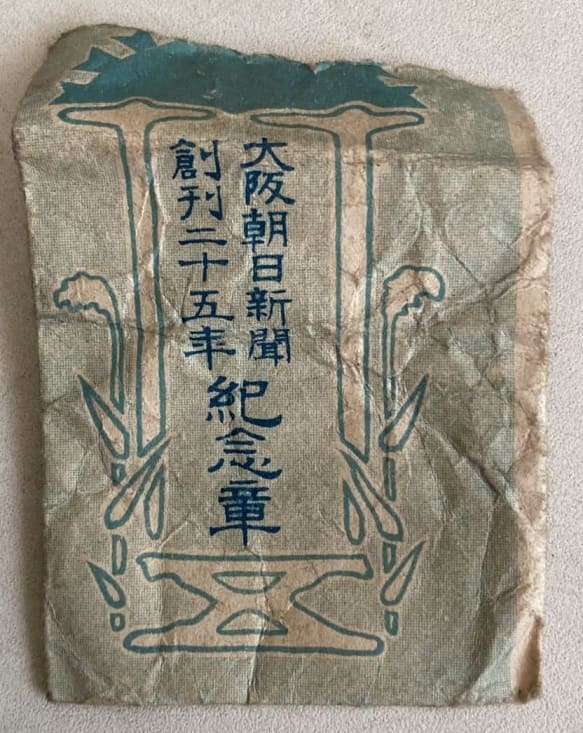 大阪朝日新聞
創刊二十五年
紀念章